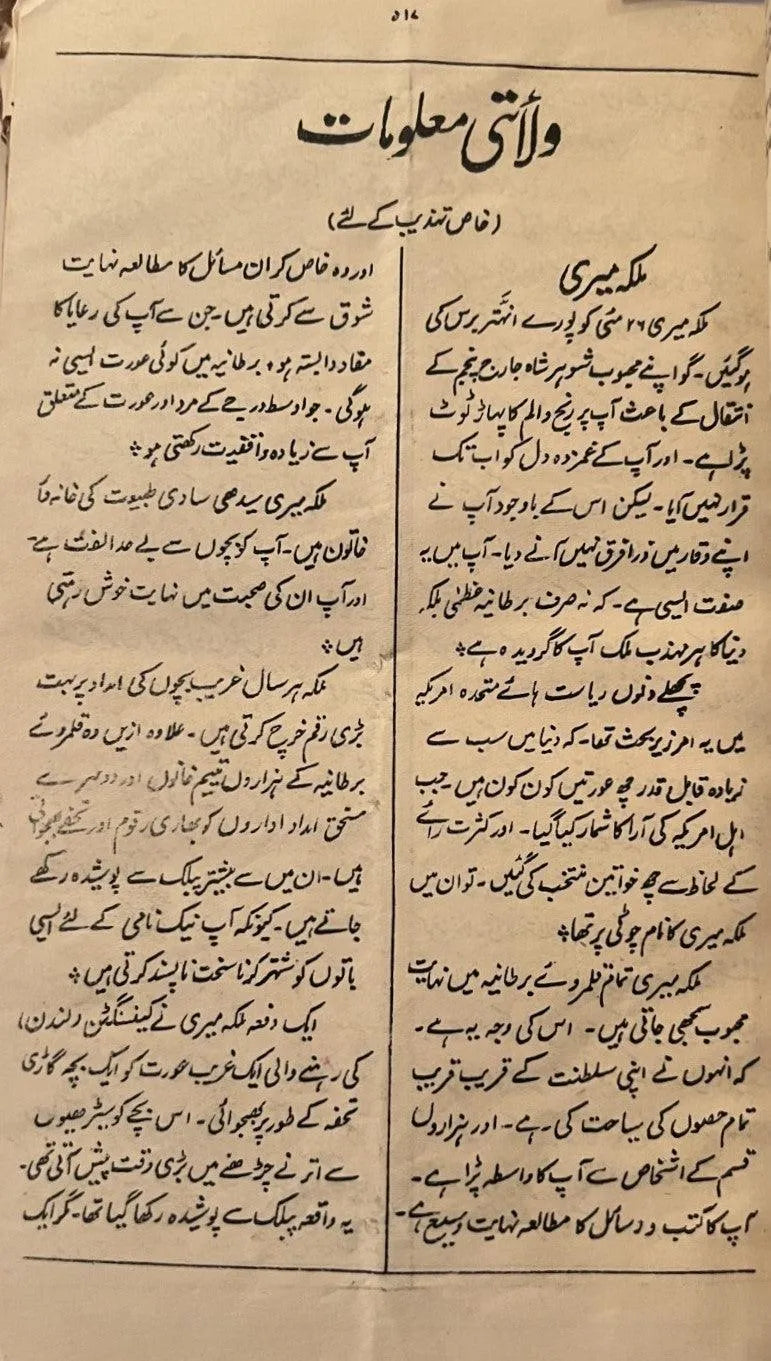 ۵۱۷
ولائتی معلومات
(خاص تہذیب کے لئے)
ملکہ میری
ملکہ میری ۲۶ مئی کو پورے انہتّر برس کی
ہوگئیں۔ گو اپنے محبوب شوہر شاہ جارج پنجم کے
انتقال کے باعث آپ پر رنج والم کا پہاڑ ٹوٹ
پڑا ہے۔ اور آپ کے غمزدہ دل کو اب تک
قرار نہیں آیا۔ لیکن اس کے باوجود آپ نے
اپنے وقار میں ذرا فرق نہیں آنے دیا۔ آپ میں یہ
صفت ایسی ہے۔ کہ نہ صرف برطانیہ عظمیٰ بلکہ
دنیا کا ہر مہذب ملک آپ کا گرویدہ ہے ٭
پچھلے دنوں ریاست ہائے متحدہ امریکہ
میں یہ امر زیر بحث تھا۔ کہ دنیا میں سب سے
زیادہ قابل قدر چھ عورتیں کون کون ہیں۔ جب
اہل امریکہ کی آرا کا شمار کیا گیا۔ اور کثرت رائے
کے لحاظ سے چھ خواتین منتخب کی گئیں۔ تو ان میں
ملکہ میری کا نام چوٹی پر تھا ٭
ملکہ میری تمام قلمروئے برطانیہ میں نہایت
محبوب سمجھی جاتی ہیں۔ اس کی وجہ یہ ہے۔
کہ انہوں نے اپنی سلطنت کے قریب قریب
تمام حصوں کی سیاحت کی ہے۔ اور ہزاروں
قسم کے اشخاص سے آپ کا واسطہ پڑا ہے۔
آپ کا کتب و رسائل کا مطالعہ نہایت وسیع ہے۔
اور وہ خاص کر ان مسائل کا مطالعہ نہایت
شوق سے کرتی ہیں۔ جن سے آپ کی رعایا کا
مفاد وابستہ ہو ٭ برطانیہ میں کوئی عورت ایسی نہ
ہوگی۔ جو اوسط درجے کے مرد اور عورت کے متعلق
آپ سے زیادہ واقفیت رکھتی ہو ٭
ملکہ میری سیدھی سادی طبیعت کی خانہ دار
خاتون ہیں۔ آپ کو بچوں سے بے حد الفت ہے۔
اور آپ ان کی صحبت میں نہایت خوش رہتی
ہیں ٭
ملکہ ہر سال غریب بچوں کی امداد پر بہت
بڑی رقم خرچ کرتی ہیں۔ علاوہ ازیں وہ قلمروئے
برطانیہ کے ہزاروں یتیم خانوں اور دوسرے
مستحق امداد اداروں کو بھاری رقوم اور تحفے بھجواتی
ہیں۔ ان میں سے بیشتر پبلک سے پوشیدہ رکھے
جاتے ہیں۔ کیونکہ آپ نیک نامی کے لئے ایسی
باتوں کو مشتہر کرنا سخت ناپسند کرتی ہیں ٭
ایک دفعہ ملکہ میری نے کینسنگٹن (لندن)
کی رہنے والی ایک غریب عورت کو ایک بچہ گاڑی
تحفہ کے طور پر بھجوائی۔ اس بچے کو سیڑھیوں
سے اترنے چڑھنے میں بڑی دقت پیش آتی تھی۔
یہ واقعہ پبلک سے پوشیدہ رکھا گیا تھا۔ مگر ایک